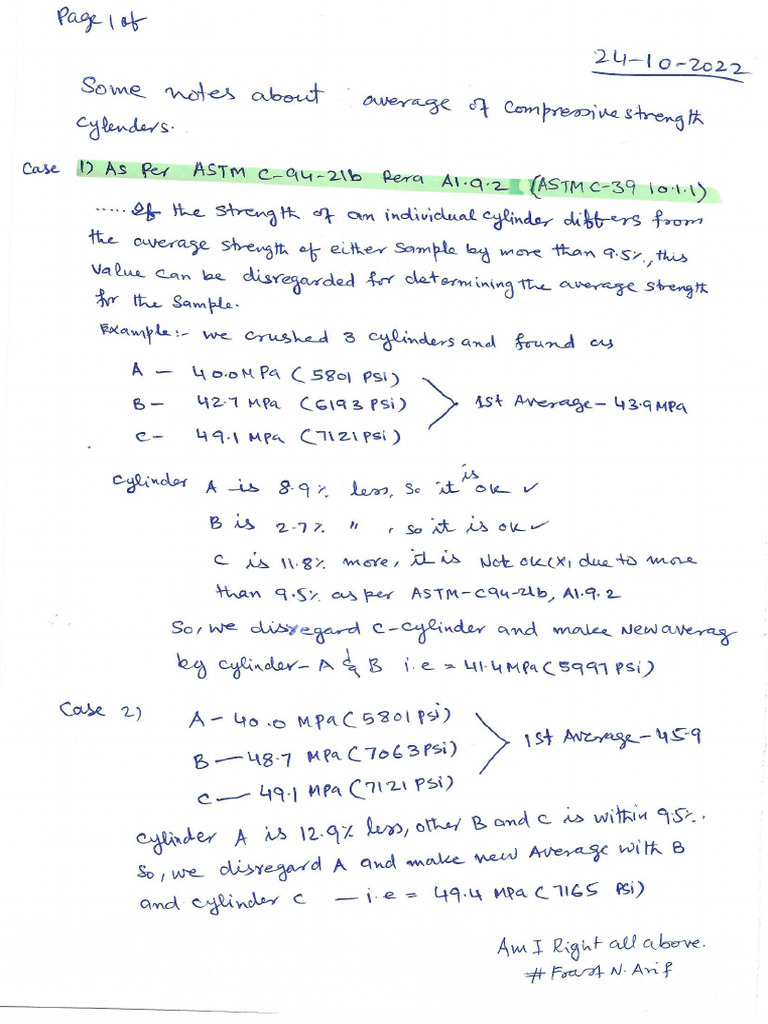 Page 1 of
24-10-2022
Some notes about average of compressive strength
cylenders.
Case 1) As Per ASTM C-94-21b Pera A1.9.2 (ASTM C-39 10.1.1)
..... If the strength of an individual cylinder differs from
the average strength of either sample by more than 9.5%, this
value can be disregarded for determining the average strength
for the Sample.
Example:- we crushed 3 cylinders and found as
A — 40.0 MPa (5801 PSi)
B — 42.7 MPa (6193 PSi) 1st Average - 43.9 MPa
C - 49.1 MPa (7121 PSi)
Cylinder A is 8.9% less, so it is ok ✓
B is 2.7% " , so it is ok ✓
C is 11.8% more, it is Not ok (X, due to more
than 9.5% as per ASTM-C94-21b, A1.9.2
So, we disregard C-cylinder and make New averag
by cylinder - A & B i.e = 41.4 MPa (5997 PSi)
Case 2) A - 40.0 MPa (5801 PSi)
B — 48.7 MPa (7063 PSi) 1st Average - 45.9
C — 49.1 MPa (7121 PSi)
cylinder A is 12.9% less, other B and C is within 9.5%.
So, we disregard A and make new Average with B
and cylinder C — i.e = 49.4 MPa (7165 PSi)
Am I Right all above.
# N. Arif